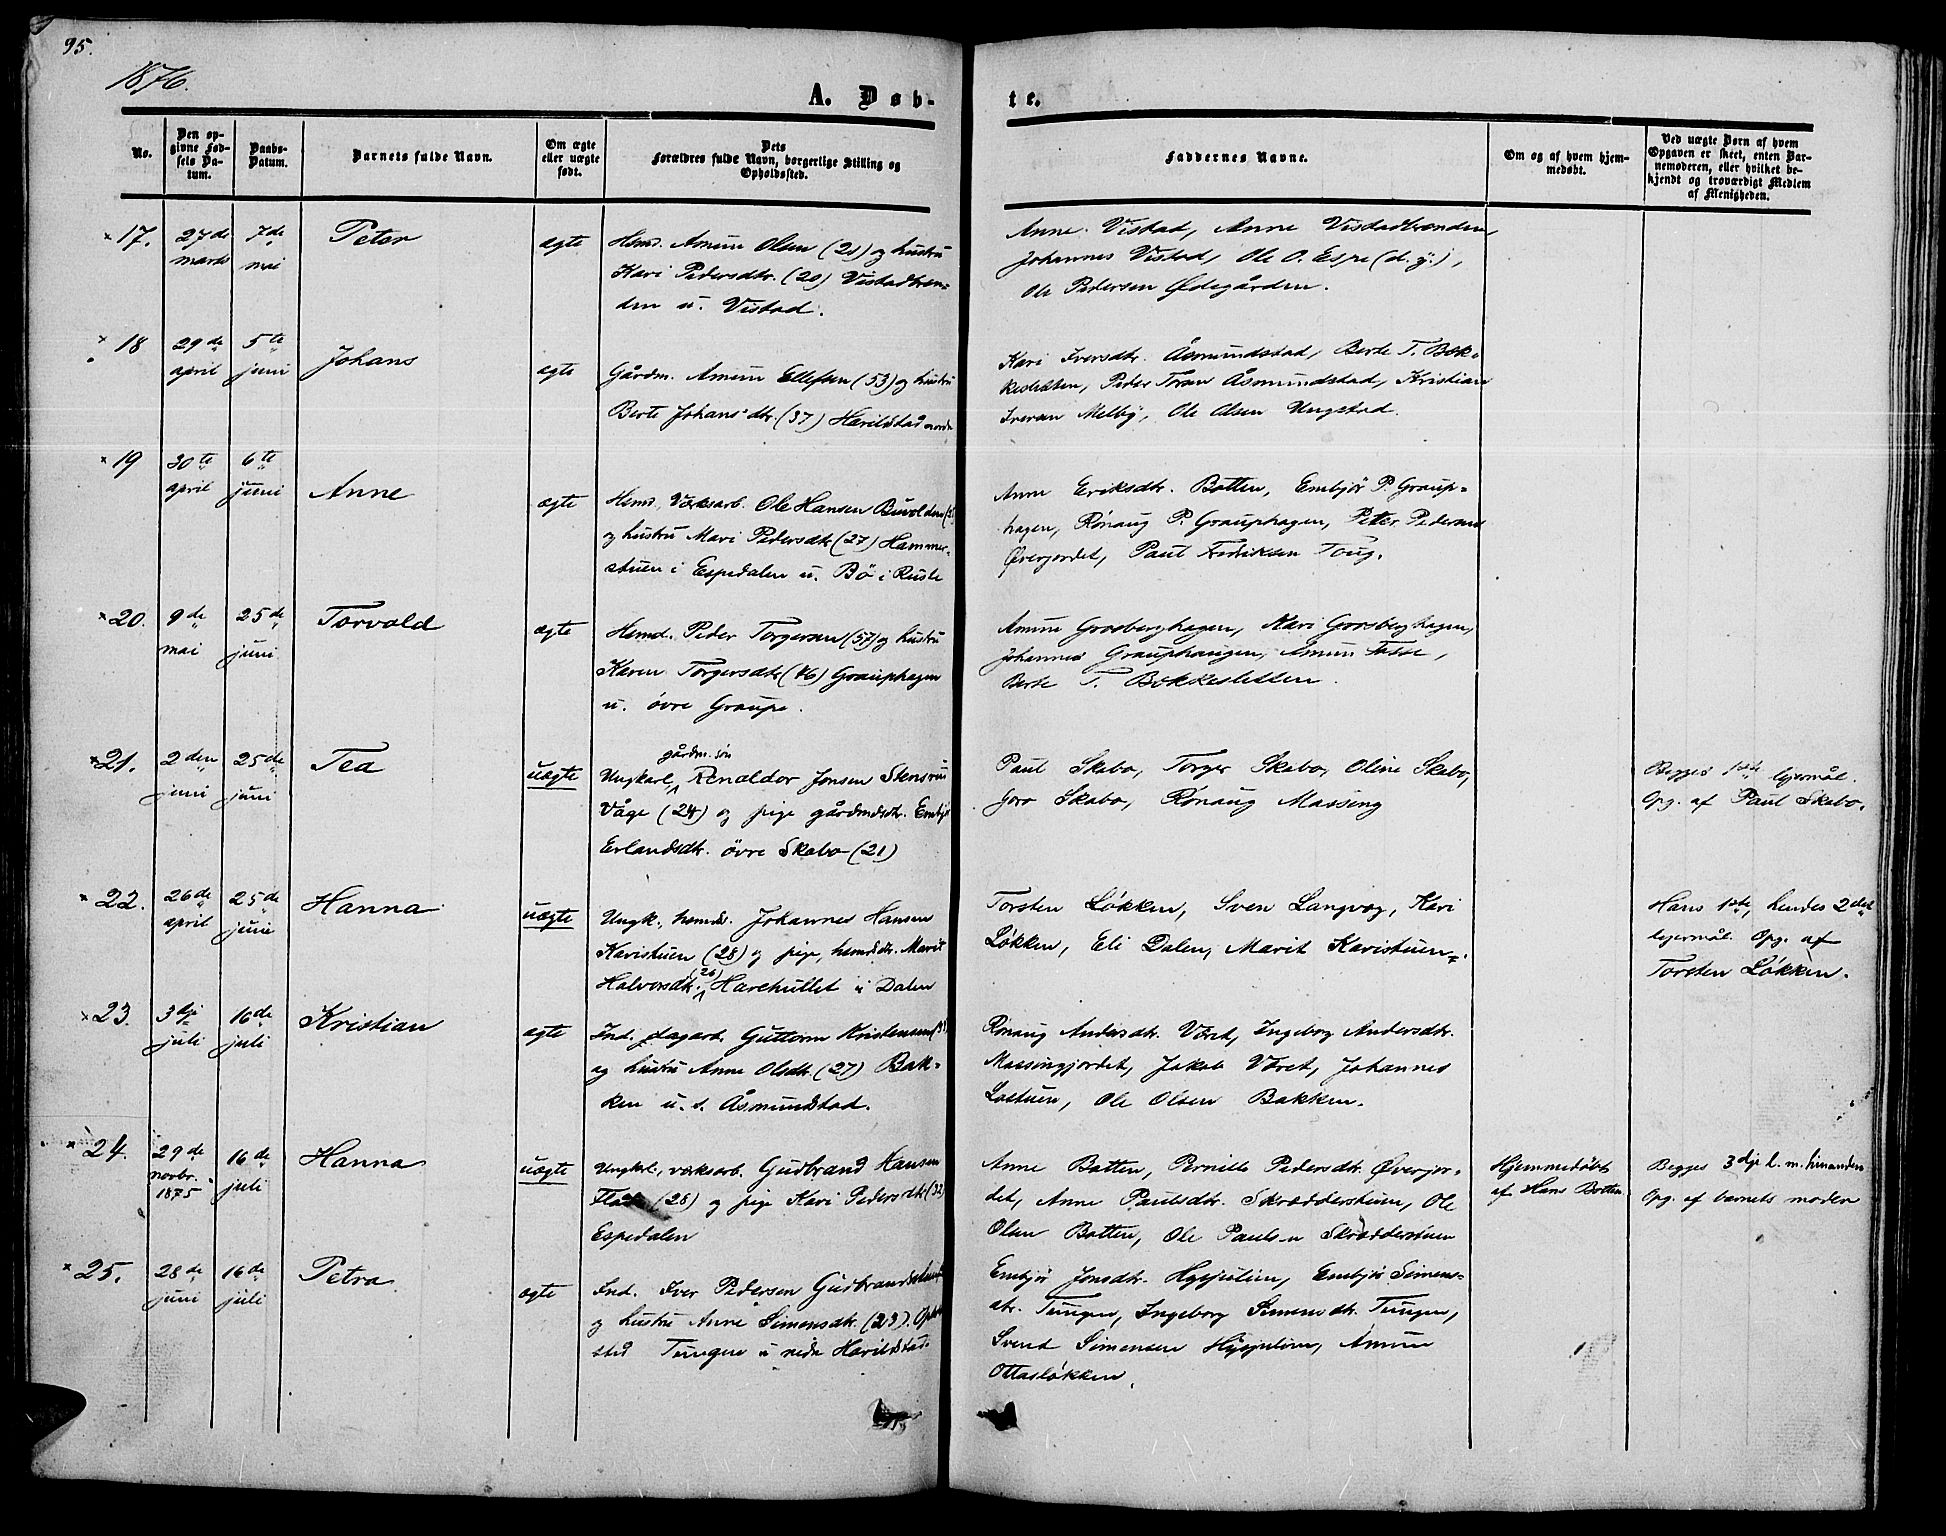 95.
1876.
A. Døb-
te.
No.
Den op-
givne Fød-
sels Da-
tum.
Daabs-
Datum.
Barnets fulde Navn.
Om ægte
eller uægte
født.
Dets
Forældres fulde Navn, borgerlige Stilling og
Opholdssted.
Faddernes Navne.
Om og af hvem hjem-
medøbt.
Ved uægte Børn af hvem
Opgaven er skeet, enten Bar-
nemoderen, eller hvilket be-
kjendt og troværdigt Medlem
af Menigheden.
× 17. 27de marts 7de mai Peter ægte
Hemd. Amun Olsen (21) og hustru
Kari Pedersdtr. (20) Vistadbræn-
den u. Vistad.
Anne Vistad, Anne Vistadbrænden,
Johannes Vistad, Ole O. Espe (d. y.),
Ole Pedersen Ødegården.
× 18 29de april 5te juni Johans ægte
Gårdm. Amun Ellefsen (53) og hustru
Berte Johansdtr. (37) Harildstad nordr
Kari Iversdtr. Åsmundstad, Berte T. Bæk-
kesletten, Peder Toran Åsmundstad, Kristian
Iveran Melby, Ole Olsen Ungstad.
× 19 30te april 6te juni Anne ægte
Hemd. Værksarb. Ole Hansen Buvolden
og hustru Mari Pedersdtr (27) Hammer-
stuen i Espedalen u. Bö i Ruste
Anne Eriksdtr. Botten, Embjör P. Graup-
hagen, Rønaug P. Grauphagen, Peter Pedersen
Øverjordet, Paul Fredriksen Toug.
× 20. 9de mai 25de juni Torvald ægte
Hemd. Peder Torgersen (57) og hustru
Karen Torgersdtr (46) Grauphagen
u. övre Graupe.
Amun Grosberghagen, Mari Grosberghagen,
Johannes Grauphaugen, Amun Tasse,
Berte T. Bækkesletten.
× 21. 2den juni 25de juni Tea uægte
gårdm. søn
Ungkarl, Renaldor Jonsen Stensrud
Våge (24) og pige gårdmdsdtr. Embjør
Erlandsdtr. övre Skabo (21)
Paul Skabo, Torger Skabo, Oline Skabo,
Goro Skabo, Rønaug Massing
Begges 1ste lejermål.
Opg. af Paul Skabo.
× 22. 26de april 25de juni Hanna uægte
Ungk. hemds. Johannes Hansen
Karistuen (28) og pige, hemdsdtr. Marit
Halvorsdtr. (26) Harehullet i Dalen
Torsten Løkken, Sven Langvog, Kari
Løkken, Eli Dalen, Marit Karistuen.
Hans 1ste, hendes 2det
lejermål. Opg. af
Torsten Løkken.
× 23. 3dje juli 16de juli Kristian ægte
Ind. dagarb. Guttorm Kristensen
og hustru Anne Olsdtr. (27) Bak-
ken u. s. Åsmundstad.
Rønaug Andersdtr. Våret, Ingeborg Andersdtr.
Massingjordet, Jakob Våret, Johannes
Lostuen, Ole Olsen Bakken.
× 24. 29de novbr. 1875 16de juli Hanna uægte
Ungkarl, værksarb. Gudbrand Hansen
(28) og pige Kari Pedersdtr (32)
Espedalen
Anne Botten, Pernille Pedersdtr. Øverjor-
det, Anne Paulsdtr. Skrædderstuen, Ole
Olsen Botten, Ole Paulsen Skrædderstuen
Hjemmedøbt
af Hans Botten
Begges 3dje l. m. hinanden
Opg. af barnets moder
× 25. 28de juni 16de juli Petra ægte
Ind. Iver Pedersen
og hustru Anne Simensdtr. (23). Ophold-
sted Tungen u nedr Harildstad.
Embjör Jonsdtr. Hysjulien, Embjör Simens-
dtr. Tungen, Ingeborg Simensdtr. Tungen,
Svend Simensen Hysjulien, Amun
Ottasløkken.